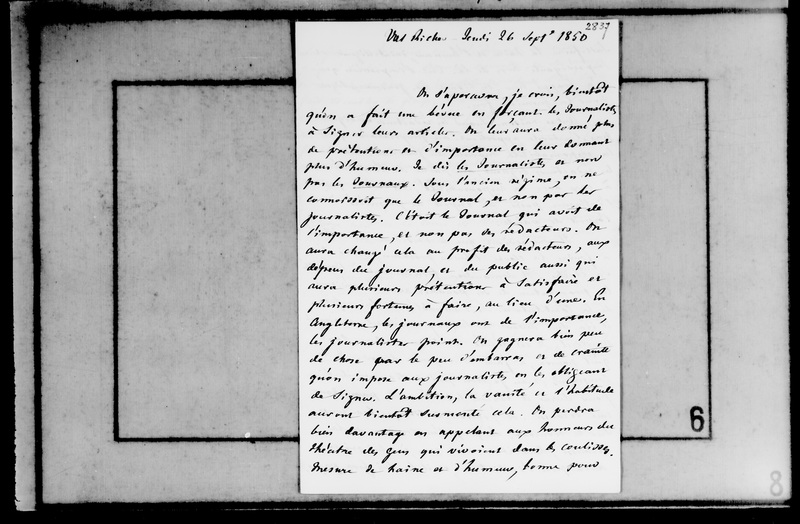 Val Richer Jeudi 26 Sept 1850
2837
On s'apercevra, je crois, bientôt
qu'on a fait une bévue en forçant les Journalistes
à signer leurs articles. On leur aura donné plus
de prétentions et d'importance en leur donnant
plus d'humeur. Je dis les Journalistes et non
pas les Journaux. Sous l'ancien régime, on ne
connoissoit que le Journal, et non pas les
journalistes. C'étoit le Journal qui avoit de
l'importance, et non pas ses rédacteurs. On
aura changé cela au profit des rédacteurs, aux
dépens du journal, et du public aussi qui
aura plusieurs prétentions à satisfaire et
plusieurs fortunes à faire, au lieu d'une. En
Angleterre, les journaux ont de l'importance,
les journalistes point. On gagnera bien peu
de chose par le peu d'embarras et de crainte
qu'on impose aux journalistes en les obligeant
de signer. L'ambition, la vanité et l'habitude
auront bientôt surmonté cela. On perdra
bien davantage en appelant aux honneurs du
théâtre des gens qui vivoient dans les coulisses.
Mesure de haine et d'humeur, bonne pour
6
8